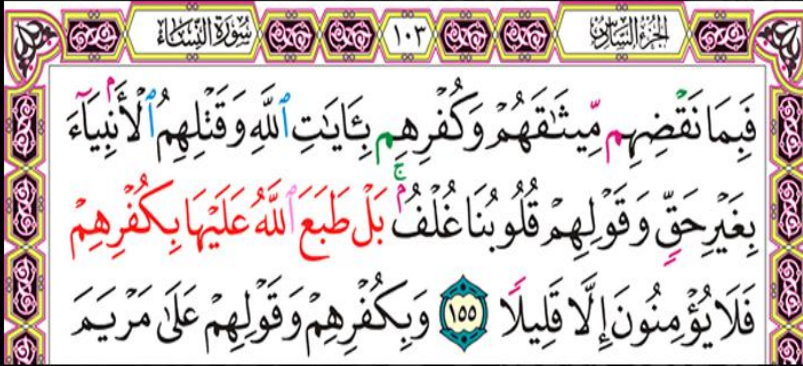 الجزء السادس ١٠٣ سورة النساء
فَبِمَا نَقْضِهِم مِّيثَٰقَهُمْ وَكُفْرِهِم بِـَٔايَٰتِ ٱللَّهِ وَقَتْلِهِمُ ٱلْأَنۢبِيَآءَ
بِغَيْرِ حَقٍّ وَقَوْلِهِمْ قُلُوبُنَا غُلْفُۢ ۚ بَلْ طَبَعَ ٱللَّهُ عَلَيْهَا بِكُفْرِهِمْ
فَلَا يُؤْمِنُونَ إِلَّا قَلِيلًا ١٥٥ وَبِكُفْرِهِمْ وَقَوْلِهِمْ عَلَىٰ مَرْيَمَ